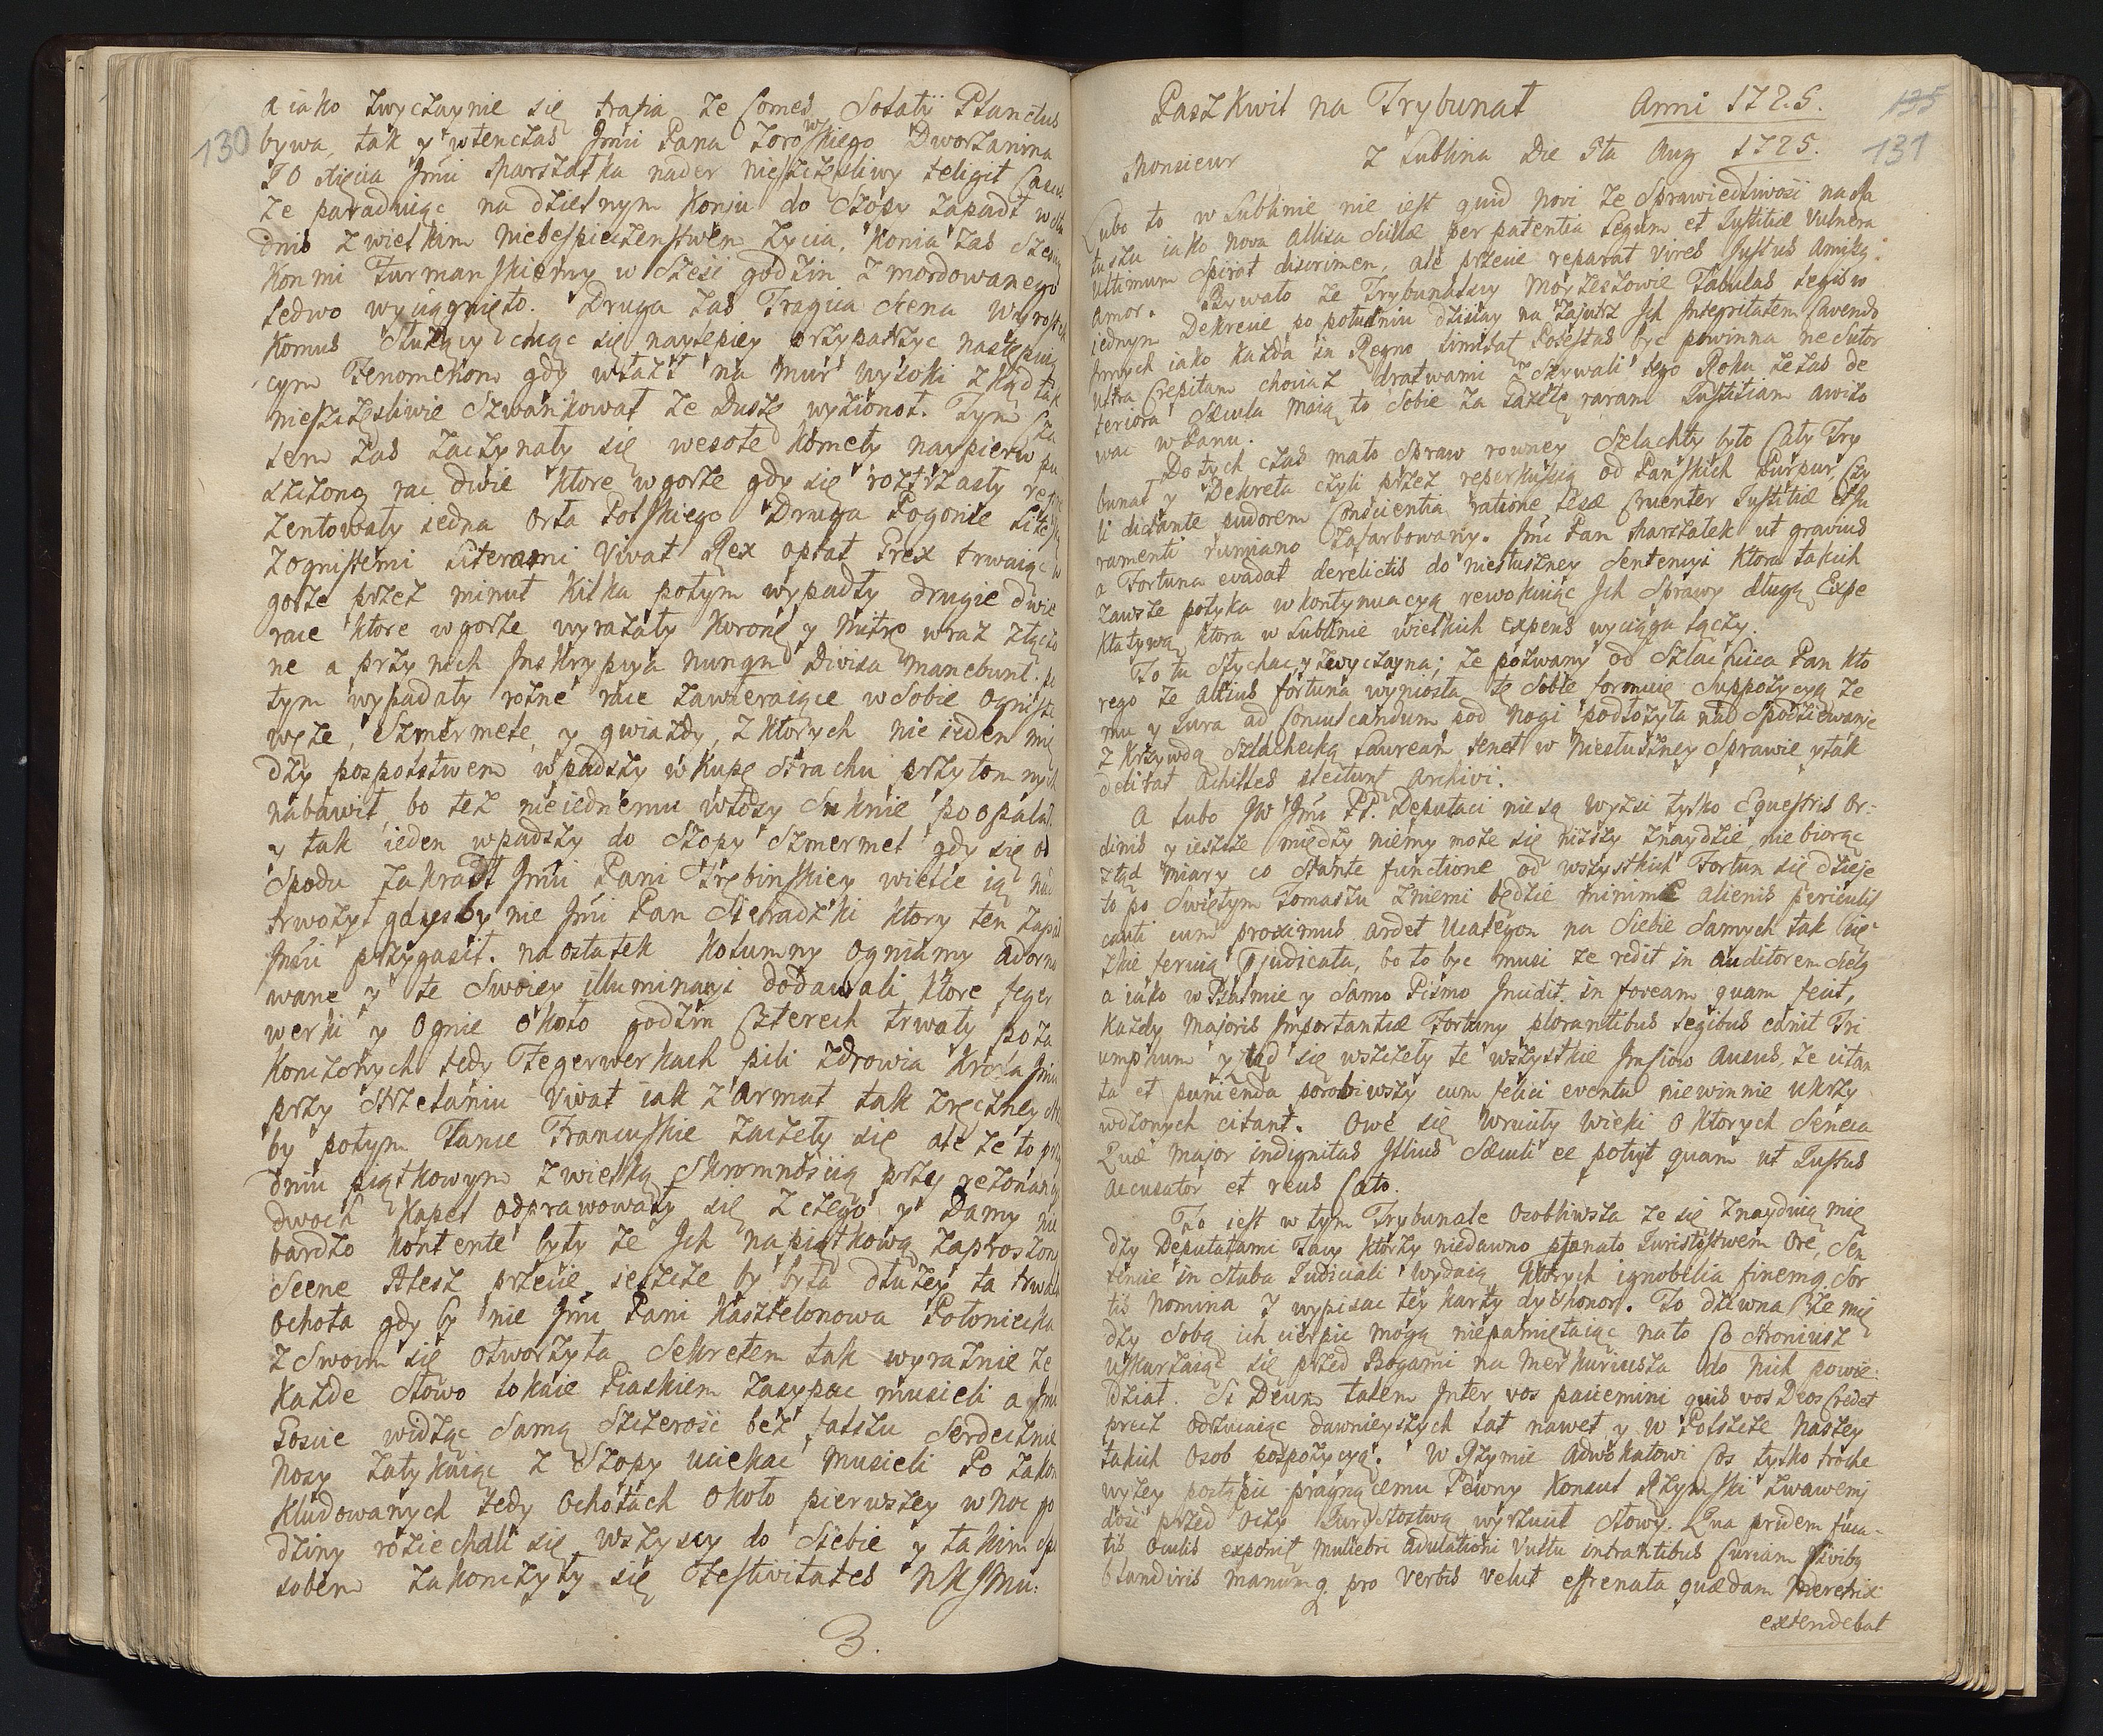 130
a iako zwyczaynie się trafia że Comes Solatij Planctus
bywa, tak y wtenczas Jmci Pana Zorowskiego Dworzanina
JO Xięcia Jmci Marszałka nader nieszczęsliwy teligit Casus
że paraduiąc na dzielnym koniu do Szopy zapadł w
dnis z wielkim niebespieczenstwem życia, konia zas
konmi Furmanskiemy w sześć godzin zmordowanego
ledwo wyciągnięto. Druga zas Tragica Scena
komus Służący chcąc się naylepiey przypatrzyc następuią
cym Fenomenom gdy wlazł na mur wysoki zkąd tak
nieszczęsliwie szwankował że Duszę wyzionoł. Tym cza
sem zas zaczynały się wesołe komety naypierw pu
szczono rac dwie ktore w gorze gdy się roztrzasły repre
zentowały iedna Orła Polskiego Druga Pogonie Lite
z ognistemi Literami Vivat Rex optat Grex trwaiąc w
gorze przez minut kilka potym wypadły drugie dwie
race ktore w gorze wyrazały koronę y Mitrę wraz złączo
ne a przy nich Inskrypcya nunqm Divisa manebunt. po
tym wypadały rożne race zawieraiące w sobie ogniste
węże, szmermele, y gwiazdy, z ktorych nie ieden mię
dzy pospolstwem wpadszy w kupę strachu przytomnych
nabawił, bo też nieiednemu włosy suknie poopalał
y tak ieden wpadszy do Szopy szmermel gdy się od
spodu zakradł Jmci Pani Trębinskiey wielce ią
trwożył gdyby nie Jmci Pan Sieradzki ktory ten zapał
Jmci przygasił. na ostatek kolumny ogniamy adorno
wane y te swoiey illuminacyi dodawali, ktore feger
werki y ognie około godzin czterech trwały po za
konczonych tedy Fegerwerkach pili zdrowia Krola Jmci
przy strzelaniu Vivat iak z armat tak z ręczney
by potym Tance Francuskie zaczeły się ale że to przy
dniu piątkowym z wielką skromnością przy rezonancyi
dwoch kapel odprawowały się z czego y Damy nie
bardzo kontente były że Ich na piątkową zaproszono
Scenę Atesz przecie ieszcze by była dłużey ta trwała
ochota gdy by nie Jmci Pani Kasztelonowa Połoniecka
z swoim się otworzyła Sekretem tak wyraznie że
każde słowo łokcie Piaskiem zasypac musieli a Jmci
Goscie widząc samą szczerość bez fałszu serdecznie
nosy zatykaiąc z Szopy uciekac musieli Po zakon
kludowanych tedy ochotach około pierwszey w noc go
dziny roziechali się wszyscy do siebie y takim spo
sobem zakonczyły się Festivitates
3.
Paszkwil na Trybunał Anni 1725.
135
131
Monsieur z Lublina Die 5ta Aug 1725.
Lubo to w Lublinie nie iest quid novi że sprawiedliwość na
tuszu iako nova allisa Sillæ per patentia Legum et Justitiæ Vulnera
ultimum spirat discrimen, ale przecie reparat vires Justus
amor. Bywało że Trybunalscy Moyżeszowie Tabulas Legis w
iednym Dekrecie po południu dzisiay na zajutrz Ich Integritatem cavendo
innych iako każda in Regno similat Potestas byc powinna ne Sutor
ultra Crepitam chociaż dratwami zszywali tego Roku żeżas de
teriora Sæcula maią to sobie za gazetę raram Justitiam awizo
wac w Panu.
Do tych czas mało spraw rowney Szlachty było Cały Try
bunał y Dekreta czyli przez reperkussią od Panskich Purpur, czy
li dictante pudorem Conscientia ratione Lesæ Cruenter Justitiæ
ramenti rumiano zafarbowany. Jmci Pan Marszałek ut gravius
a Fortuna evadat derelictis do niesłuszney Sentencyi ktora takich
zawsze potyka w kontynuacyą rewokuiąc Ich Sprawy długą Expe
ktatywą ktora w Lublinie wielkich expens wyciąga łączy.
To tu słychac y zwyczayna; że pozwany od Szlachcica Pan kto
rego że altius fortuna wyniosła te sobie formuie suppozycyą że
mu y Jura ad Conculcandum pod nogi podłożyła nad Spodziewanie
z krzywdą Szlachecką Lauream tenet w niesłuszney Sprawie y tak
delitat Achilles plectunt Archivi.
A lubo JW Jmci PP. Deputaci nie są wyżsi tylko Equestris Or-
dinis y ieszcze między niemy może się niższy znaydzie, nie biorąc
ztąd miary co stante functione od wszystkich Fortun się dzieje
to po Swiętym Tomaszu z niemi będzie minimè alienis periculis
cauti cum proximus ardet Ucalegon na siebie samych tak
zkie feruią prjudicata, bo to byc musi że redit in auditorem
a iako w Psalmie y samo Pismo Incidit in foveam quam fecit,
każdy majoris Importantiæ Fortuny plorantibus legibus canit Tri
umphum y tąd się wszczeły te wszystkie Jmsciow Ausus, że citan
ta et punienda porobiwszy cum felici eventu niewinnie ukrzy
wdzonych citant. Owe się wruciły Wieki o ktorych Seneca
Quæ major indignitas Illius Sæculi ee potuit quam ut Justus
accusator et reus Cato.
To iest w tym Trybunale osobliwsza że się znayduią mię
dzy Deputatami Tacy ktorzy niedawno płonato Juristostwem Ore, Sen
tencie in stuba Judiciali wydaią, ktorych ignobilia finemq. Sor
tis Nomina y wypisac tey karty dyshonor. To dziwna że mię
dzy sobą ich cierpic mogą niepamiętaiąc na to Co Stroniusz
uskarzaiąc się przed Bogami na Merkuriusza do Nich powie-
dział. Si Deum talem Inter vos patiemini quis vos Deos Credet
precz odrzucaiąc dawnieyszych lat nawet y w Polszcze naszey
takich osob pospozycyą. W Rzymie Adwokatowi Cos tylko troche
wyżey postąpic pragnącemu Pewny Konsul Rzymski zwawemi
dość przed oczy Juristostwa wyrzucił słowy. Qua pridem fuca-
tis oculis exponit muliebri adulationi vultu intrantibus Curiam Civibq
blandiris manumq. pro verbis velut effrenata quædam Meretrix
extendebat